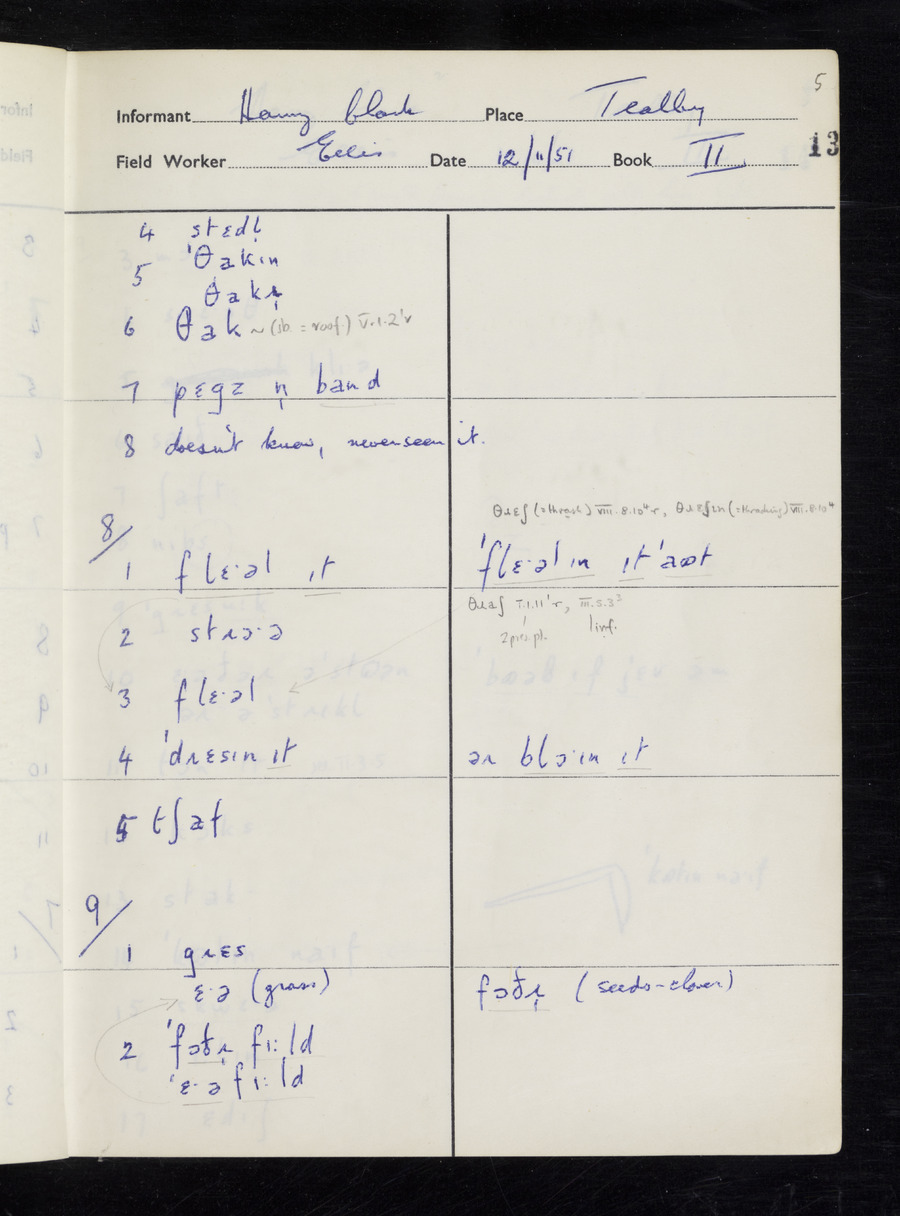 5
Informant Harry Clark Place Tealby
13
Field Worker Ellis Date 12/11/51 Book II
4 stɛdl̩
5 'θakɪn
θakɹ̩
6 θak ~ (ib. = roof) V.1.2'r
7 pɛgz n̩ band
8 doesn't know, never seen it.
θɹɛʃ (=thrash) VIII.8.10⁴r, θɹɛʃɪn (=thrashing) VIII.8.10⁴
8/
1 flɛ·əl ɪt 'flɛ·əlɪn ɪt 'aʊt
θɹaʃ I.1.11'r, III.5.3³
2 pres. pl. 1 inf.
2 stɹɔ·ə
3 flɛ·əl
4 'dɹɛsɪn ɪt əɹ blɔ·ɪn ɪt
5 tʃaf
9/
1 gɹɛs
ɛ·ə (grass) fɔðɹ̩ (seeds-clover)
2 'fɔðɹ̩ fɪ:ld
'ɛ·ə fɪ:ld